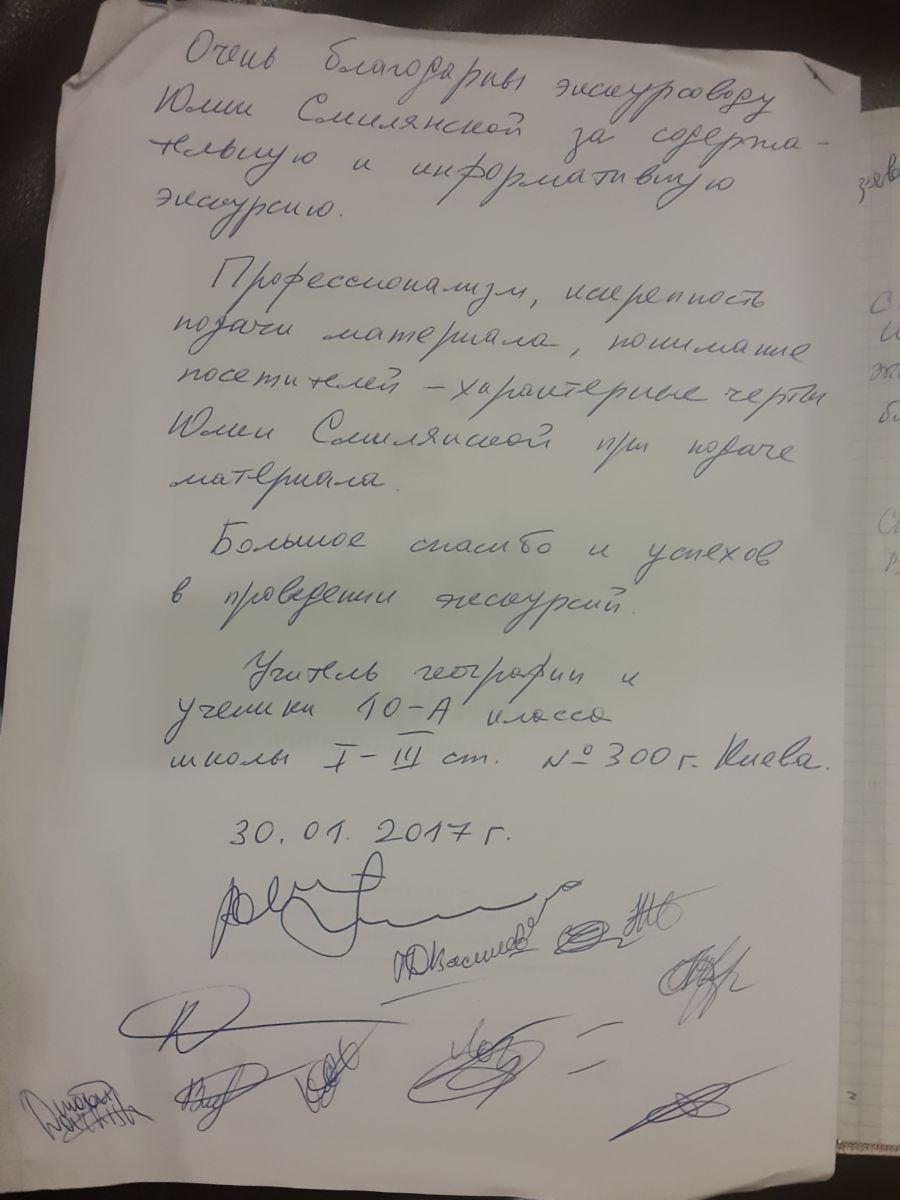 Очень благодарны экскурсоводу
Юлии Смилянской за содержа-
тельную и информативную
экскурсию.
Профессионализм, искренность
подачи материала, понимание
посетителей – характерные черты
Юлии Смилянской при подаче
материала.
Большое спасибо и успехов
в проведении экскурсий.
Учитель географии и
ученики 10-А класса
школы I-III ст. № 300 г. Киева.
30.01.2017 г.